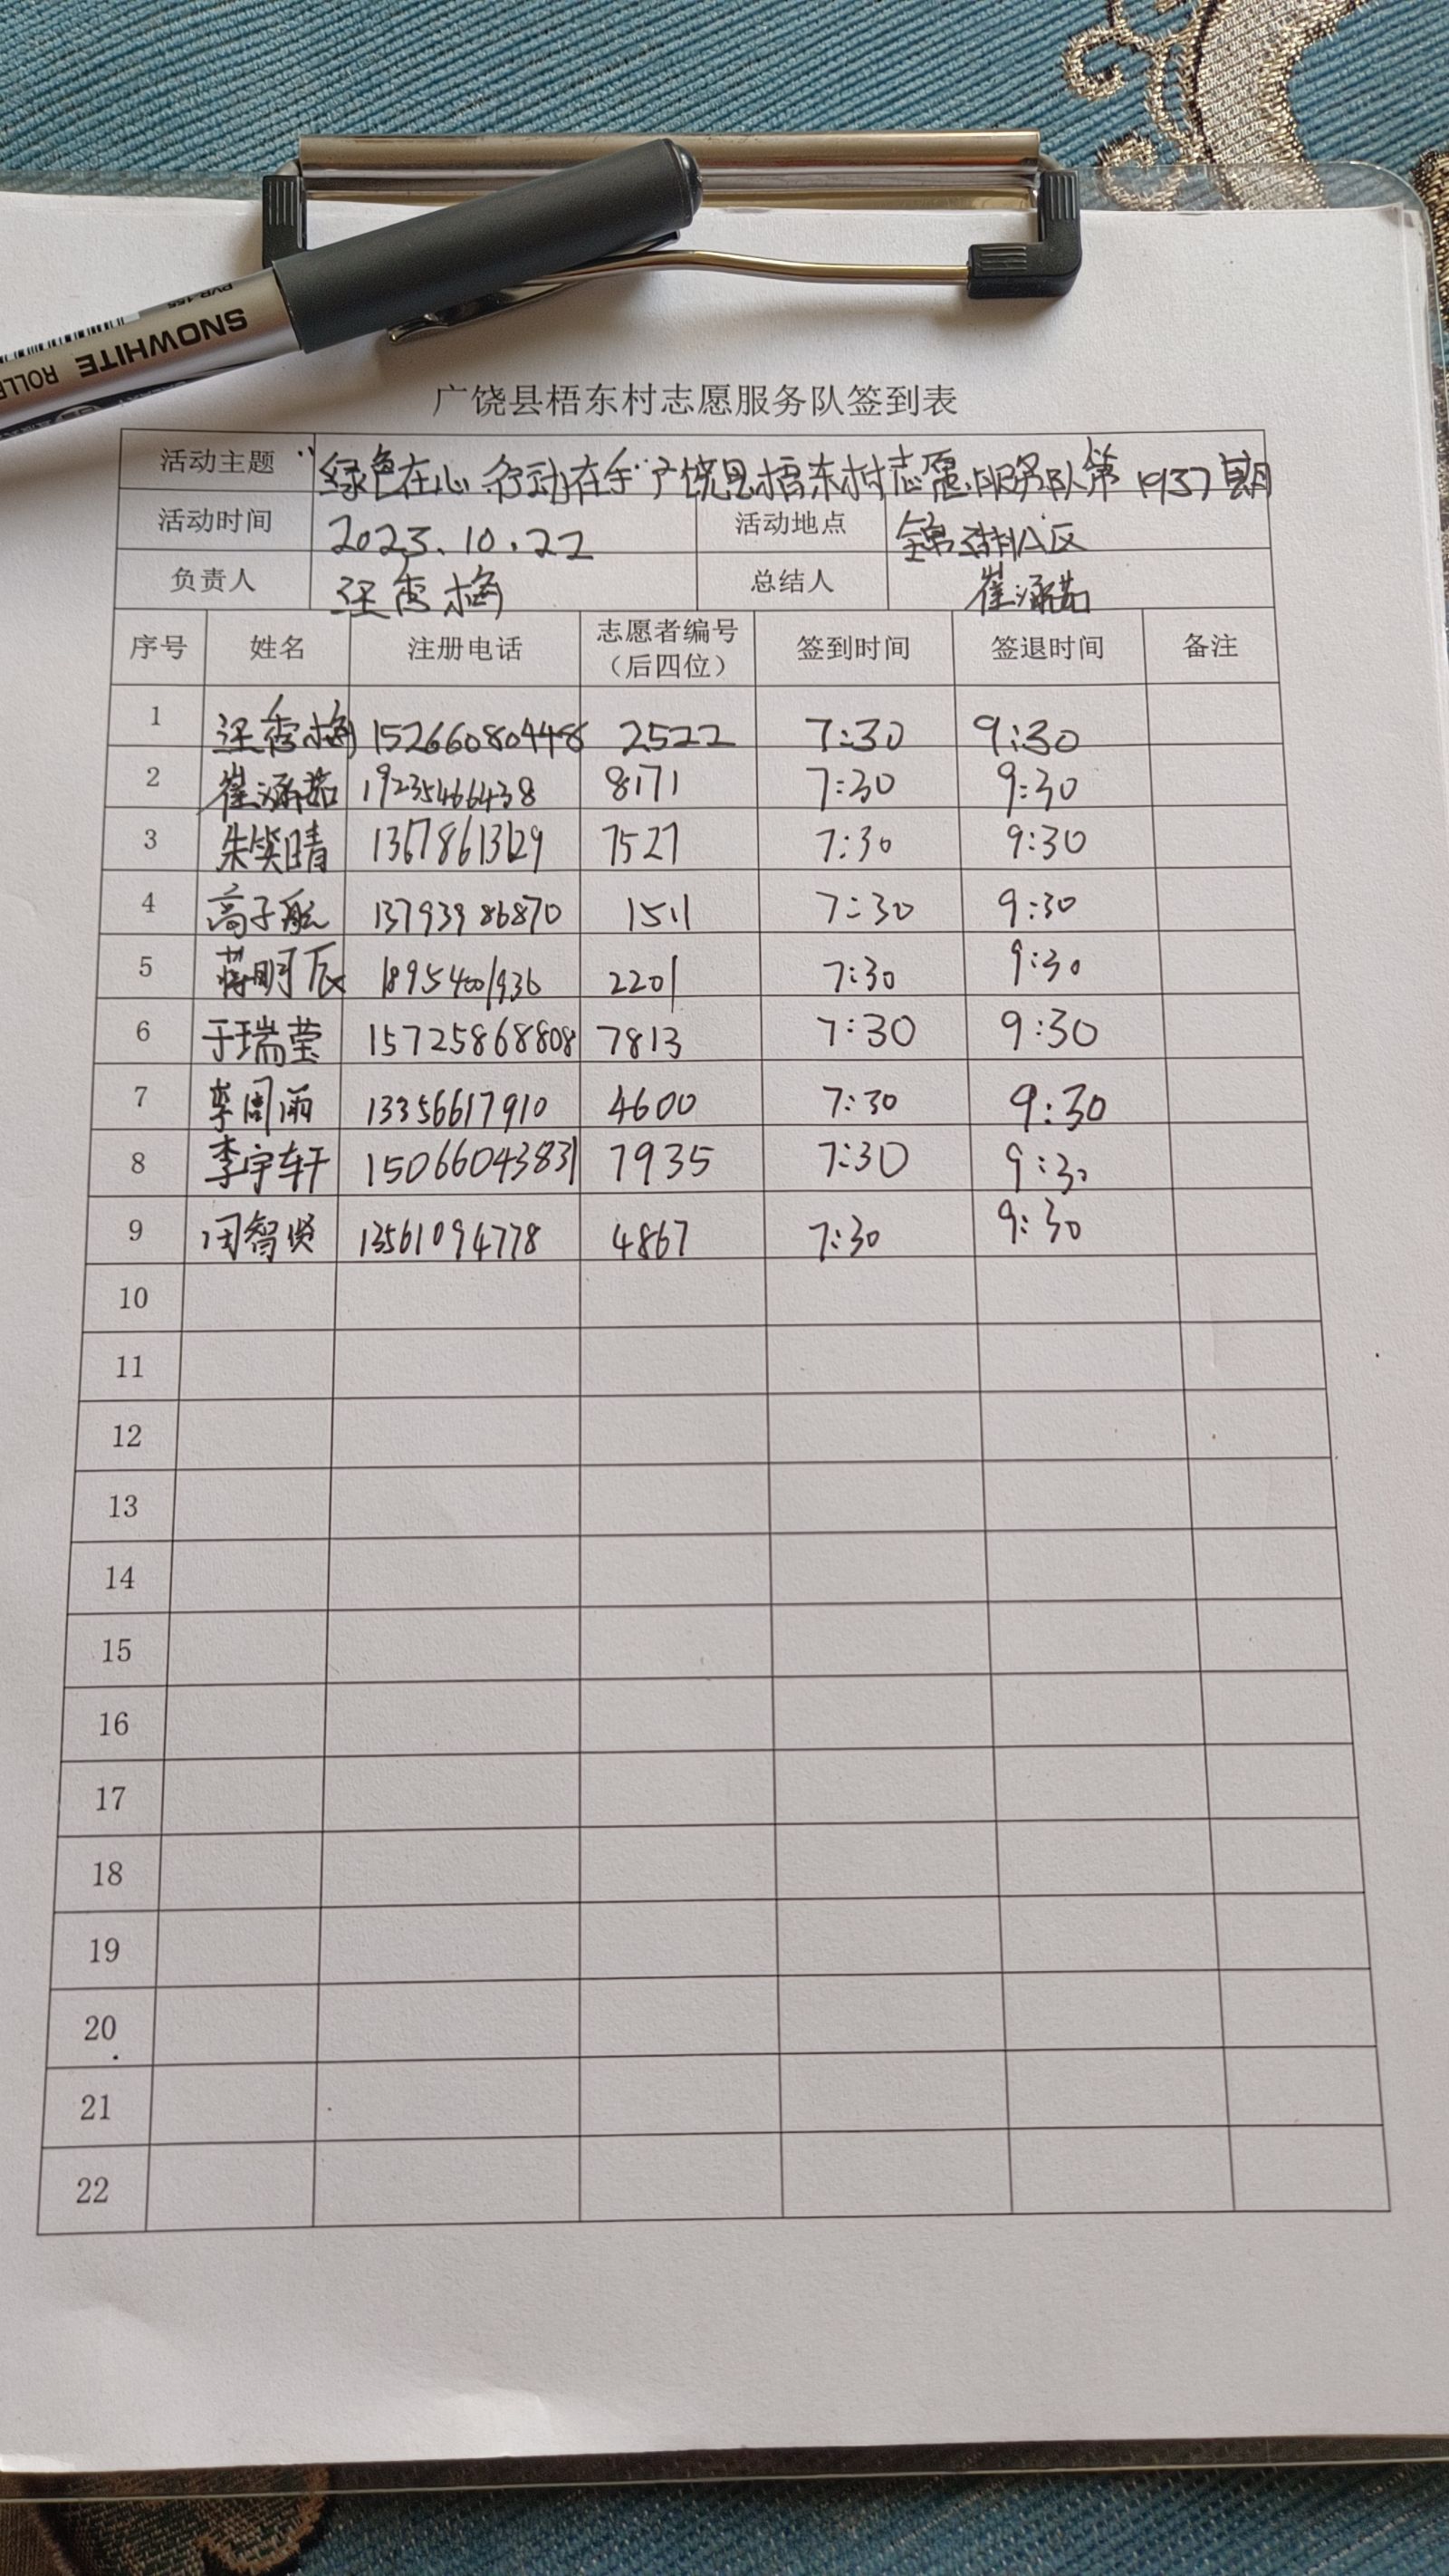 PVR-155
SNOWHITE ROLLE
广饶县梧东村志愿服务队签到表
活动主题 “绿色在心 行动在手”广饶县梧东村志愿服务队第1937期
活动时间 2023.10.22 活动地点 锦湖A区
负责人 秀梅 总结人 崔涵茹
序号 姓名 注册电话 志愿者编号（后四位） 签到时间 签退时间 备注
1 秀梅 15266080448 2522 7:30 9:30
2 崔涵茹 19235466438 8171 7:30 9:30
3 朱笑晴 13678613129 7527 7:30 9:30
4 高子航 13793986870 1511 7:30 9:30
5 蒋明辰 18954001936 2201 7:30 9:30
6 于瑞莹 15725868808 7813 7:30 9:30
7 李周雨 13356617910 4600 7:30 9:30
8 李宇轩 15066043831 7935 7:30 9:30
9 闫智贤 13561094778 4867 7:30 9:30
10
11
12
13
14
15
16
17
18
19
20
21
22